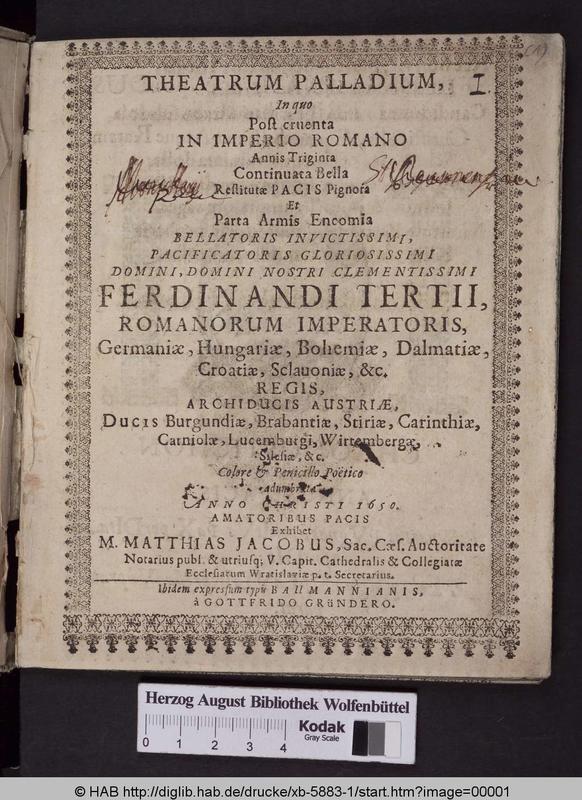 (1)
THEATRUM PALLADIUM, I.
In quo
Post cruenta
IN IMPERIO ROMANO
Annis Triginta
Continuata Bella
Restitutæ PACIS Pignora
Et
Parta Armis Encomia
BELLATORIS INVICTISSIMI,
PACIFICATORIS GLORIOSISSIMI
DOMINI, DOMINI NOSTRI CLEMENTISSIMI
FERDINANDI TERTII,
ROMANORUM IMPERATORIS,
Germaniæ, Hungariæ, Bohemiæ, Dalmatiæ,
Croatiæ, Sclavoniæ, &c.
REGIS,
ARCHIDUCIS AUSTRIÆ,
Ducis Burgundiæ, Brabantiæ, Stiriæ, Carinthiæ,
Carniolæ, Lucemburgi, Wirtembergæ,
Silesiæ, &c.
Colore & Penicillo Poëtico
adumbrata
ANNO CHRISTI 1650.
AMATORIBUS PACIS
Exhibet
M. MATTHIAS JACOBUS, Sac. Cæs. Auctoritate
Notarius publ. & utriusq; V. Capit. Cathedralis & Collegiatæ
Ecclesiarum Wratislaviæ p. t. Secretarius.
Ibidem expressum typis BAUMANNIANIS,
à GOTTFRIDO GRÜNDERO.
Herzog August Bibliothek Wolfenbüttel
0 1 2 3 4
Kodak
Gray Scale
© HAB http://diglib.hab.de/drucke/xb-5883-1/start.htm?image=00001